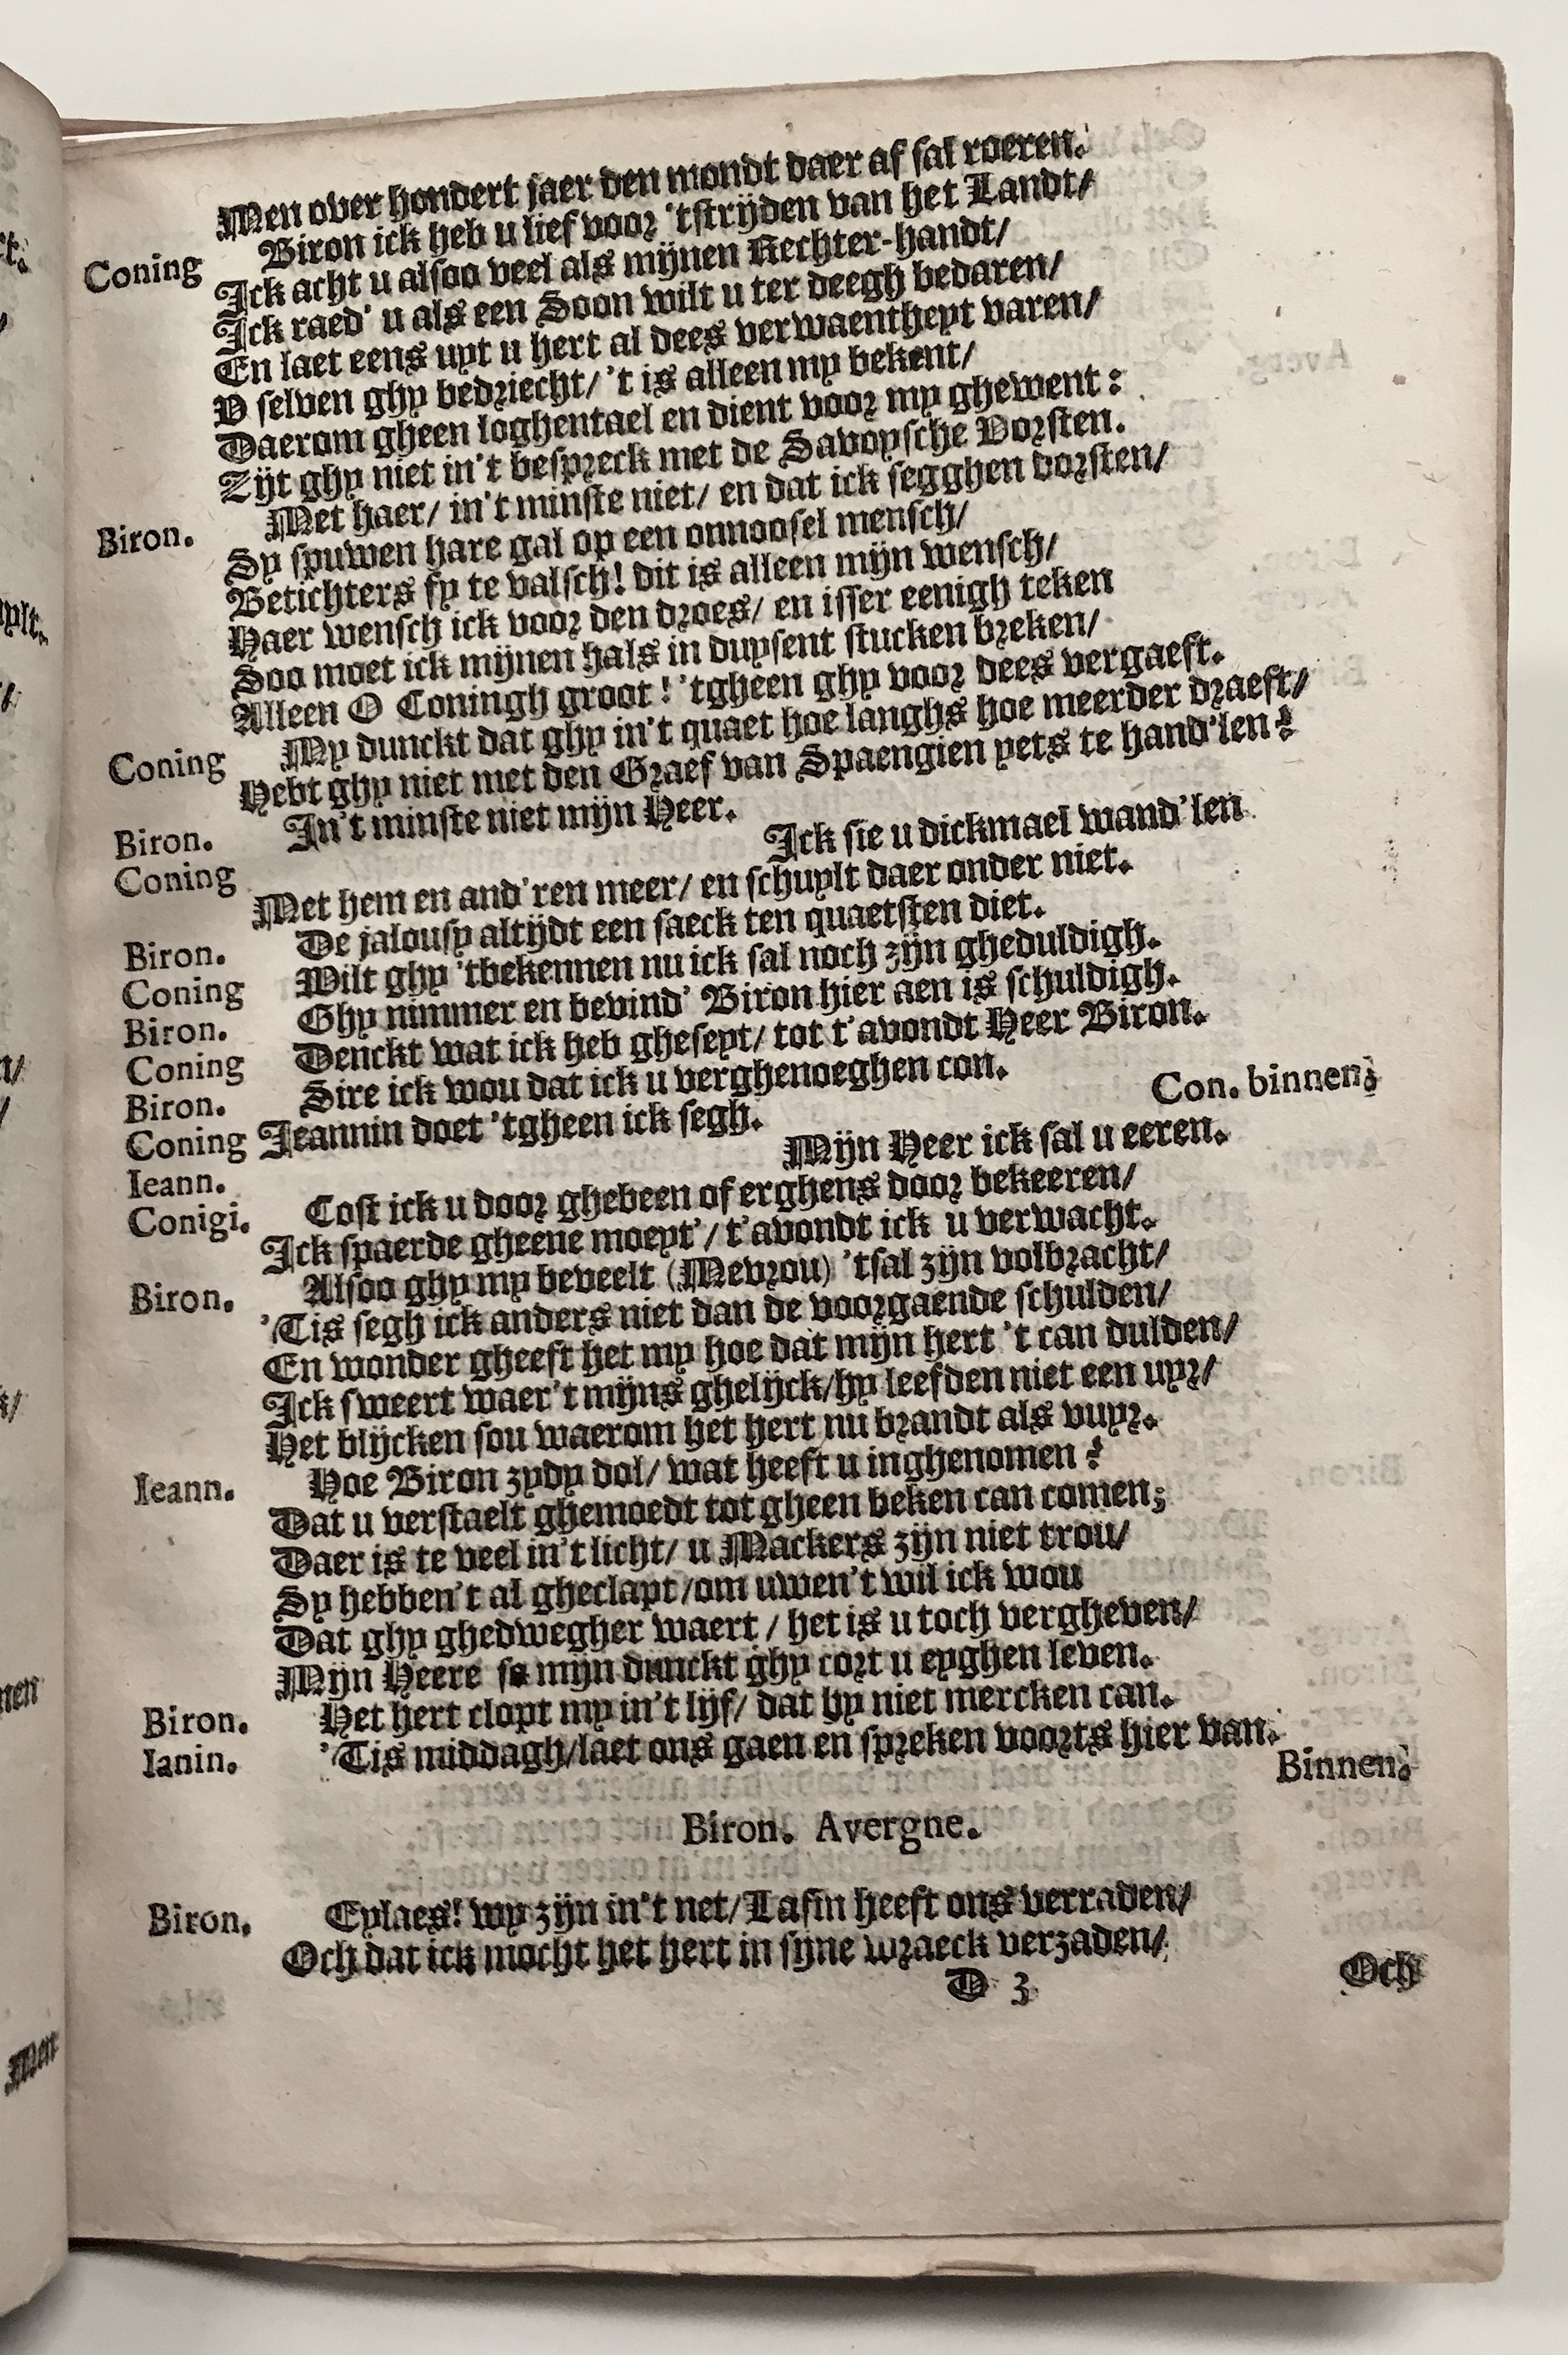 Men over hondert jaer den mondt daer af sal roeren.
Coning Biron ick heb u lief voor 'tstrijden van het Landt/
Ick acht u alsoo veel als mijnen Rechter-handt/
Ick raed' u als een Soon wilt u ter deegh bedaren/
En laet eens uyt u hert al dees verwaentheyt varen/
V selven ghy bedriecht/ 't is alleen my bekent/
Daerom gheen loghentael en dient voor my ghewent:
Zijt ghy niet in't bespreck met de Savoysche Vorsten.
Biron. Met haer/ in't minste niet/ en dat ick segghen dorsten/
Sy spuwen hare gal op een onnoosel mensch/
Betichters fy te valsch! dit is alleen mijn wensch/
Haer wensch ick voor den droes/ en isser eenigh teken
Soo moet ick mijnen hals in duysent stucken breken/
Alleen O Coningh groot! 'tgheen ghy voor dees vergaeft.
Coning My dunckt dat ghy in't quaet hoe langhs hoe meerder draeft/
Hebt ghy niet met den Graef van Spaengien yets te hand'len?
Biron. In't minste niet mijn Heer.
Coning Ick sie u dickmael wand'len
Met hem en and'ren meer/ en schuylt daer onder niet.
Biron. De jalousy altijdt een saeck ten quaetsten diet.
Coning Wilt ghy 'tbekennen nu ick sal noch zijn gheduldigh.
Biron. Ghy nimmer en bevind' Biron hier aen is schuldigh.
Coning Denckt wat ick heb gheseyt/ tot t'avondt Heer Biron.
Biron. Sire ick wou dat ick u verghenoeghen con.
Con. binnen.
Coning Jeannin doet 'tgheen ick segh.
Ieann. Mijn Heer ick sal u eeren.
Conigi. Cost ick u door ghebeen of erghens door bekeeren/
Ick spaerde gheene moeyt'/ t'avondt ick u verwacht.
Biron. Alsoo ghy my beveelt (Mevrou) 'tsal zijn volbracht/
'Tis segh ick anders niet dan de voorgaende schulden/
En wonder gheeft het my hoe dat mijn hert 't can dulden/
Ick sweert waer't mijns ghelijck/hy leefden niet een uyr/
Het blijcken sou waerom het hert nu brandt als vuyr.
Ieann. Hoe Biron zydy dol/ wat heeft u inghenomen?
Dat u verstaelt ghemoedt tot gheen beken can comen;
Daer is te veel in't licht/ u Mackers zijn niet trou/
Sy hebben't al gheclapt/om uwen't wil ick wou
Dat ghy ghedwegher waert/ het is u toch vergheven/
Mijn Heere so mijn dunckt ghy cort u eyghen leven.
Biron. Het hert clopt my in't lijf/ dat hy niet mercken can.
Ianin. 'Tis middagh/laet ons gaen en spreken voorts hier van.
Binnen.
Biron. Avergne.
Biron. Eylaes! wy zijn in't net/ Lafin heeft ons verraden/
Och dat ick mocht het hert in sijne wraeck verzaden/
D 3
Och